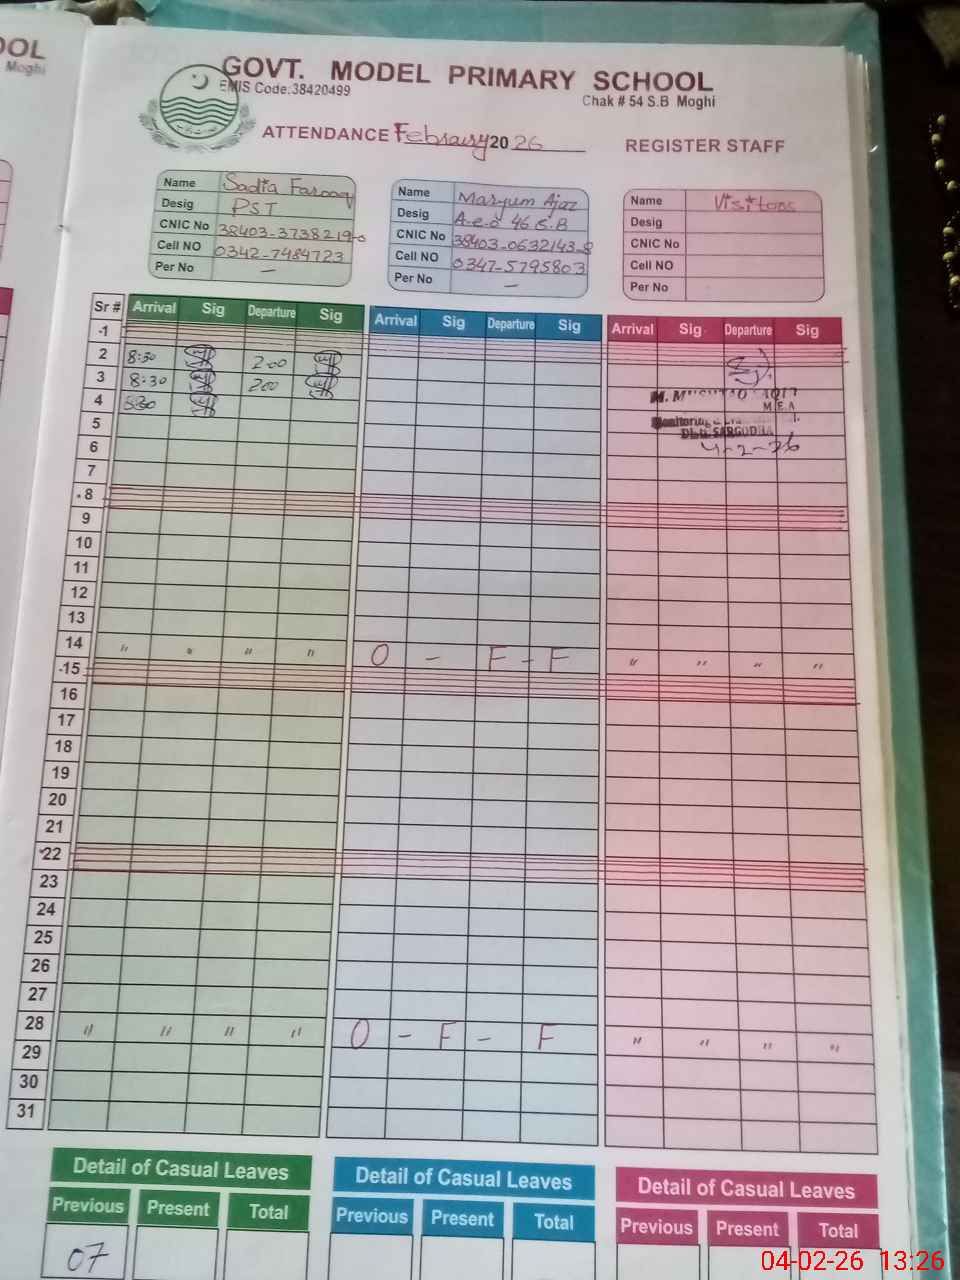 OOL
Moghi
GOVT. MODEL PRIMARY SCHOOL
EMIS Code:38420499
Chak # 54 S.B Moghi
ATTENDANCE February 2026
REGISTER STAFF
Name Sadia Farooq
Desig PST
CNIC No 38403-3738219-0
Cell NO 0342-7484723
Per No -
Name Maryum Ajaz
Desig A-e-o 46 S.B
CNIC No 38403-0632143-8
Cell NO 0347-5795803
Per No -
Name Visitors
Desig
CNIC No
Cell NO
Per No
Sr # Arrival Sig Departure Sig Arrival Sig Departure Sig Arrival Sig Departure Sig
1
2 8:30 200
3 8:30 200
4 8:30
M.E.A
5
Distt: SARGODHA
6 4-2-26
7
8
9
10
11
12
13
14 " " " " O - F - F " " " "
15
16
17
18
19
20
21
22
23
24
25
26
27
28 " " " " O - F - F " " " "
29
30
31
Detail of Casual Leaves Detail of Casual Leaves Detail of Casual Leaves
Previous Present Total Previous Present Total Previous Present Total
07
04-02-26 13:26